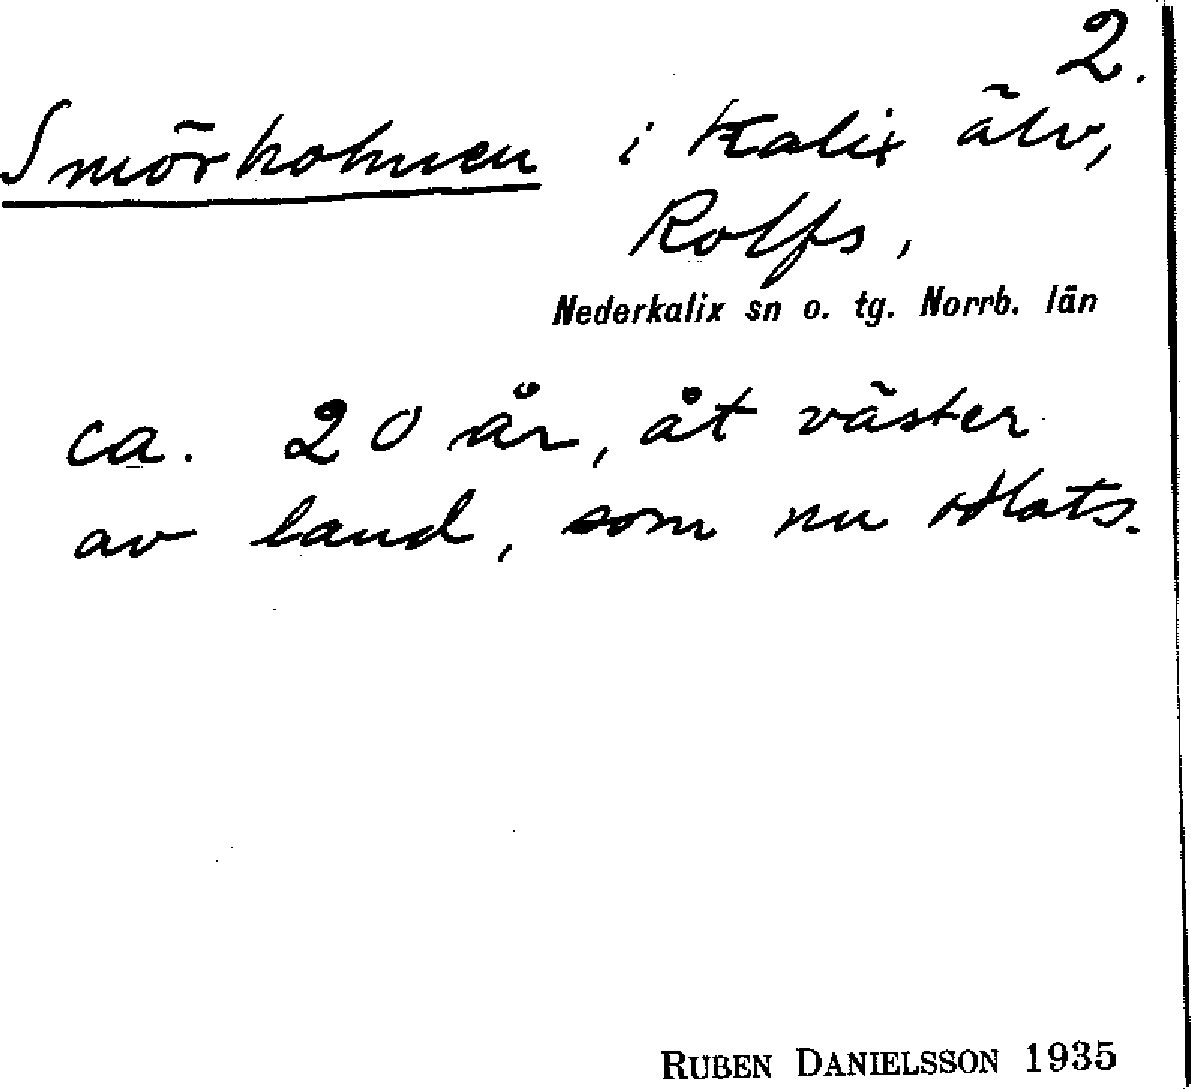 2.
Smörholmen i Kalix älv,
Rolfs,
Nederkalix sn o. tg. Norrb. län
ca. 20 år, åt väster
av land, som nu
RUBEN DANIELSSON 1935